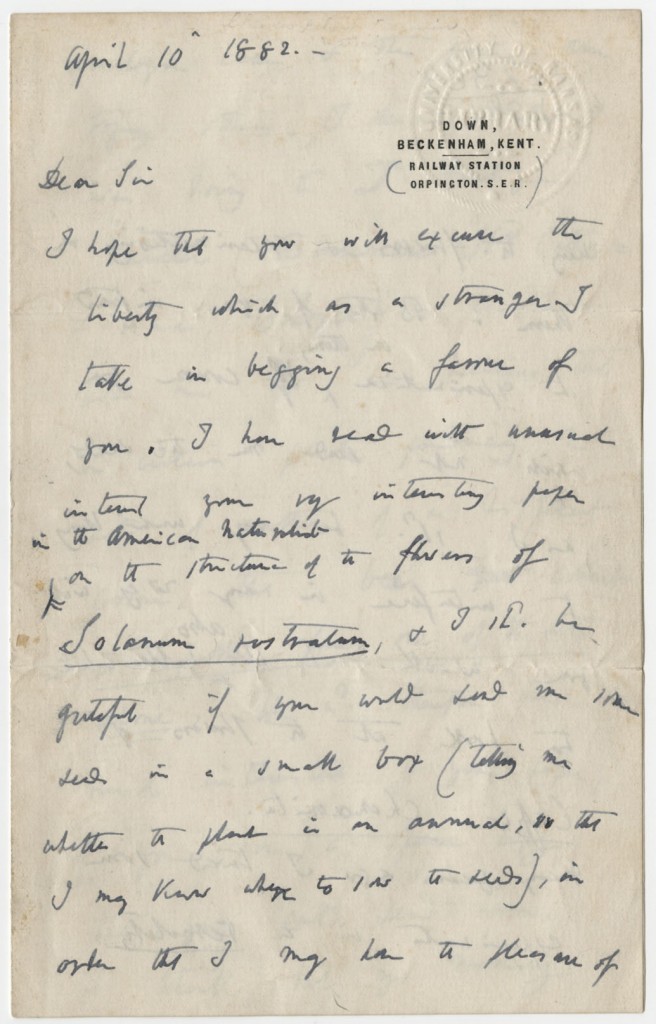 April 10th 1882. —
DOWN,
BECKENHAM, KENT.
RAILWAY STATION
ORPINGTON. S.E.R.
Dear Sir
I hope that you will excuse the
liberty which as a stranger I
take in begging a favour of
you. I have read with unusual
interest your very interesting paper
in the American Naturalist
on the structure of the flowers of
Solanum rostratum, & I shd. be
grateful if you would send me some
seeds in a small box (telling me
whether the plant is an annual, so that
I may know when to sow the seeds), in
order that I may have the pleasure of